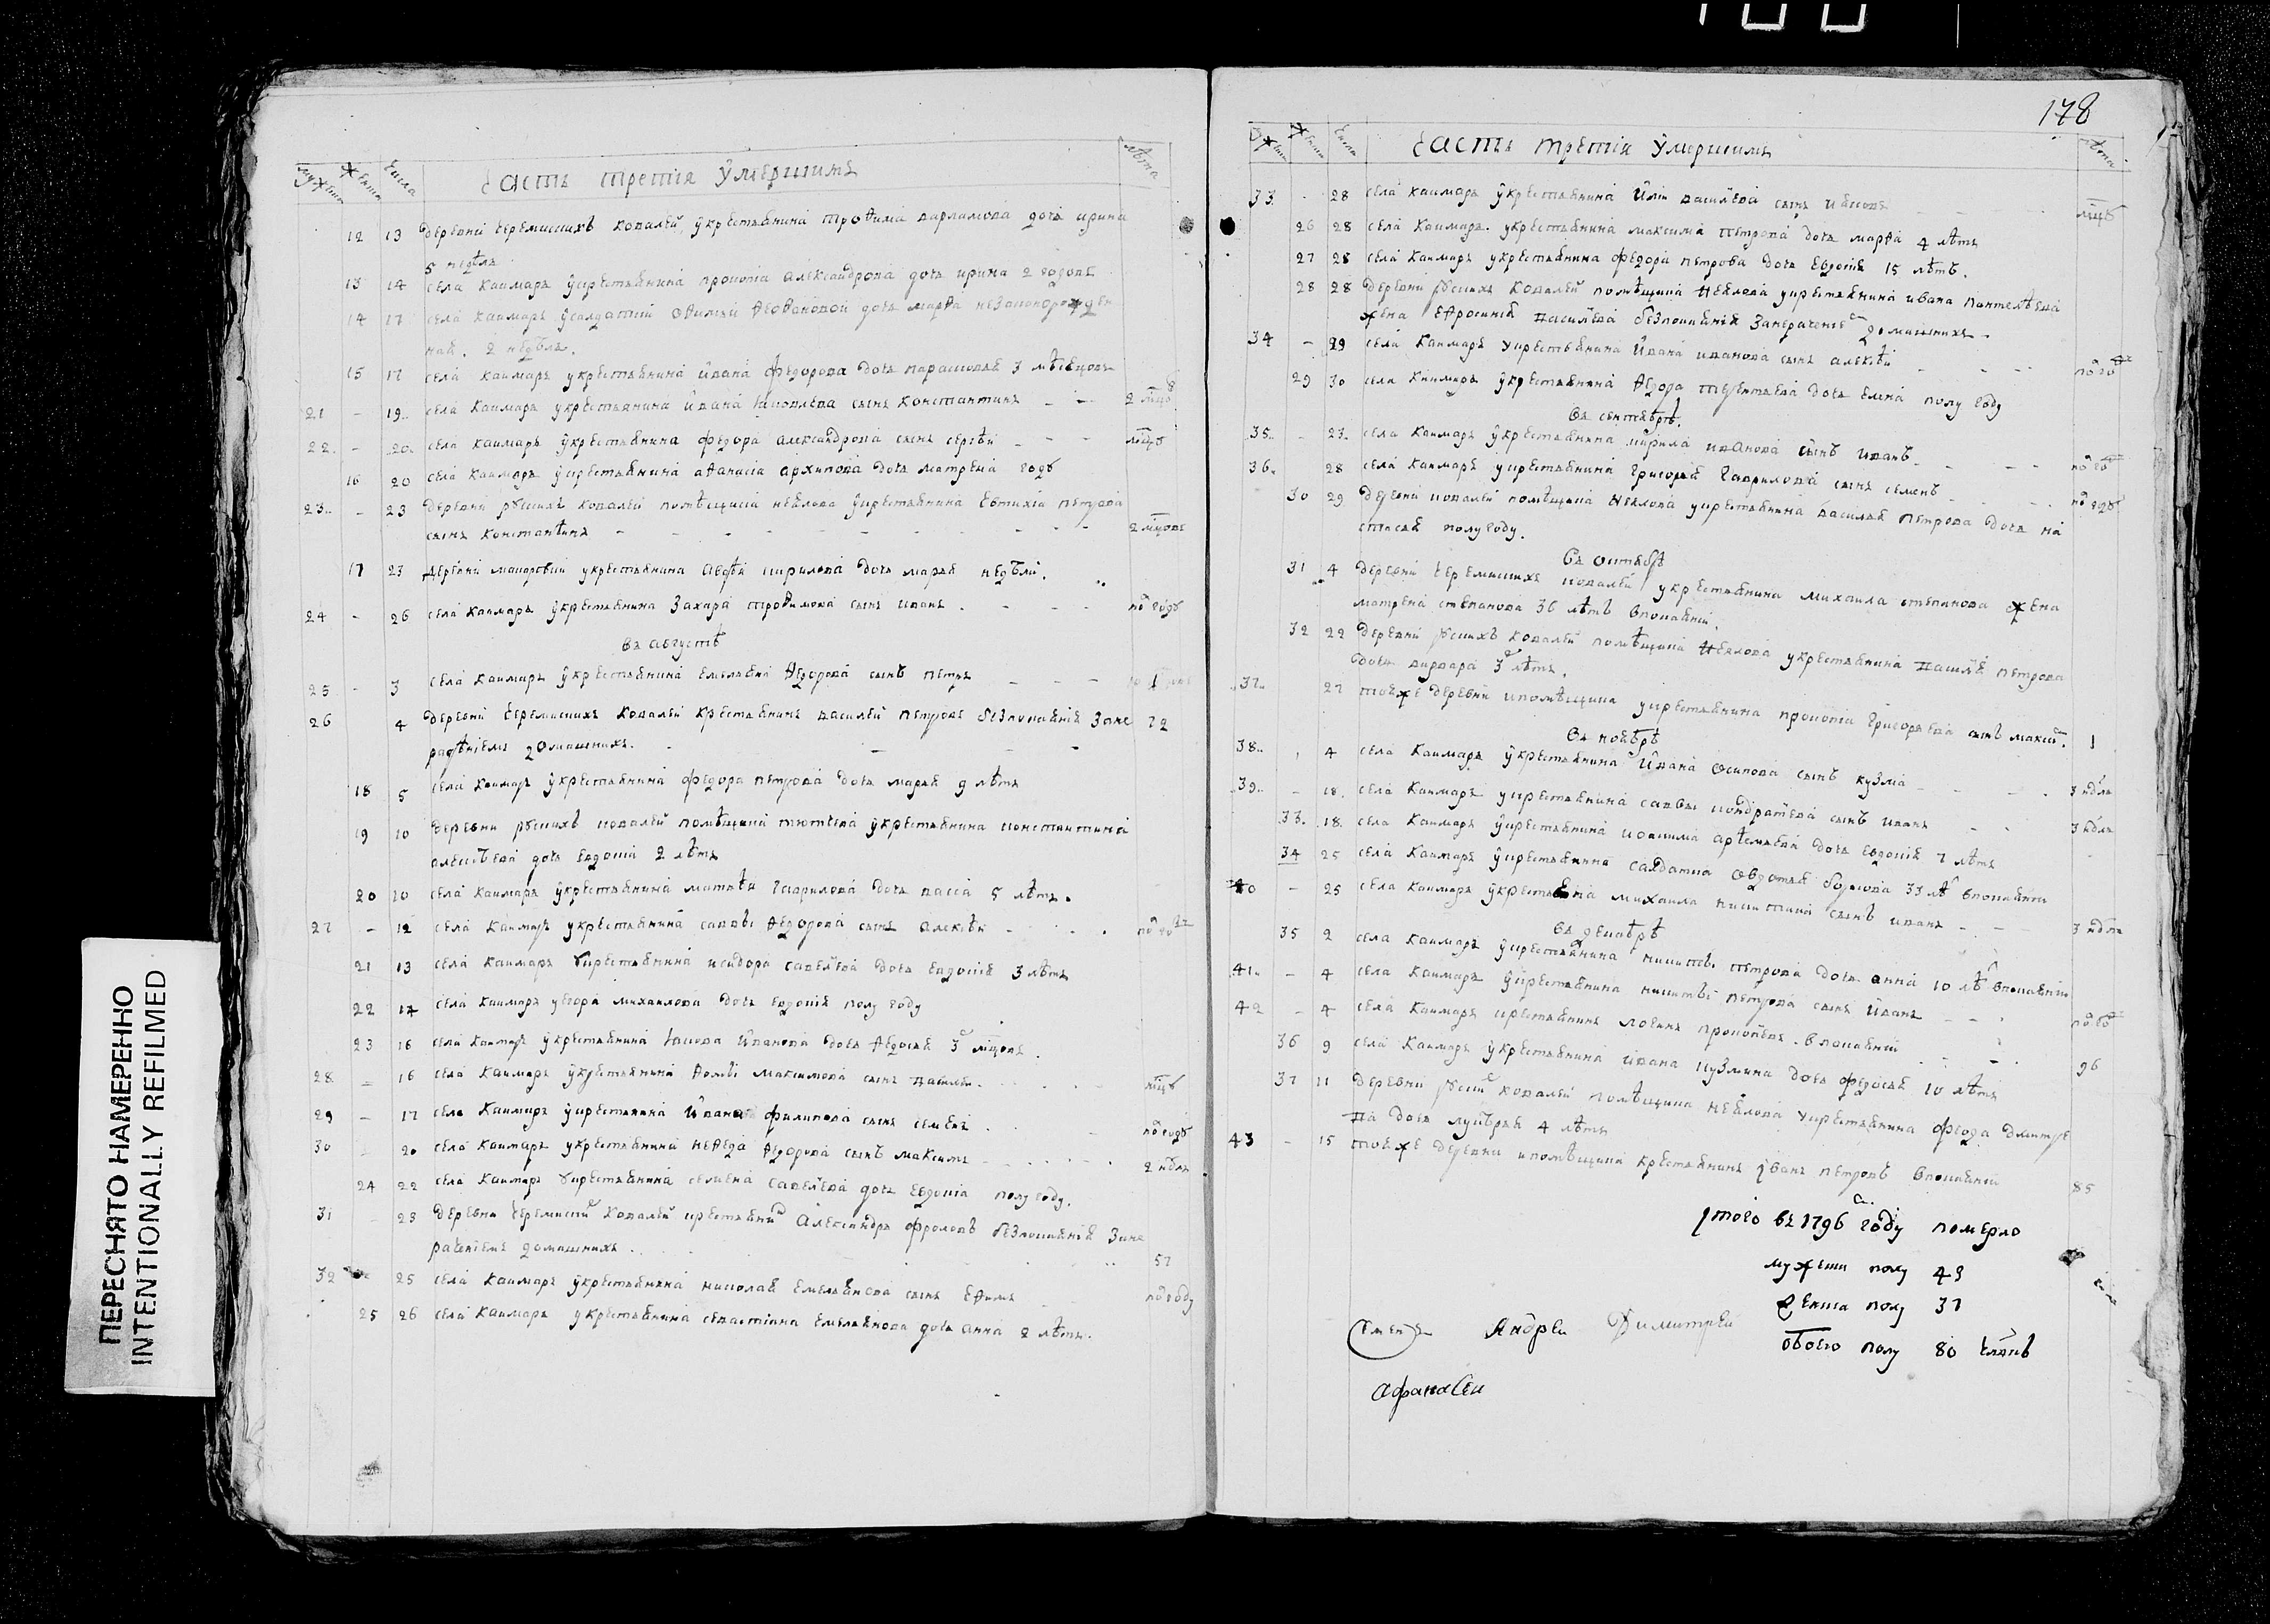 178
мужеска женска числа часть третія умершимъ лѣта
12 13 деревни черемишихъ ковалей укрестьянина трофима варламова дочь ирина
5 недѣль
13 14 села каимаръ укрестьянина прокопіа александрова дочь ирина 2 годовъ
14 17 села каимаръ усалдатки дочь марѳа незаконорожден
ная. 2 недѣль.
15 17 села каимаръ укрестьянина ивана федорова дочь парасковья 3 мѣсяцовъ
21 - 19 села каимаръ укрестьянина ивана іаковлева сынъ константинъ - - 2 мцъ
22 - 20 села каимаръ укрестьянина федора александрова сынъ сергѣй - - - мцъ
16 20 села каимаръ укрестьянина аѳанасіа архипова дочь матрена годъ
23 - 23 деревни рускихъ ковалей помѣщика неѣлова укрестьянина евтихіа петрова
сынъ константинъ - - - 2 мцовъ
17 23 деревни макаровки укрестьянина авдѣя кирилова дочь марья недѣли.
24 - 26 села каимаръ укрестьянина захара трофимова сынъ иванъ - - - полгодъ
въ августѣ
25 - 3 села каимаръ укрестьянина емельяна ѳедорова сынъ петръ - - -
26 4 деревни черемишихъ ковалей крестьянинъ василей петровъ безпокаянія зане 72
радѣніемъ домашнихъ.
18 5 села каимаръ укрестьянина федора петрова дочь марья 9 лѣтъ
19 10 деревни рускихъ ковалей помѣщика тютчева укрестьянина константина
алексѣева дочь евдокіа 2 лѣтъ
20 10 села каимаръ укрестьянина матвѣя гаврилова дочь васса 5 лѣтъ.
27 - 12 села каимаръ укрестьянина саввы ѳедорова сынъ алексѣй - - - полго
21 13 села каимаръ укрестьянина исидора савельева дочь евдокія 3 лѣтъ
22 14 села каимаръ уегора михаилова дочь евдокія полу году
23 16 села каимаръ укрестьянина іакова иванова дочь ѳедосья 3 мцовъ.
28 - 16 села каимаръ укрестьянина ѳомы максимова сынъ василей - - мцъ
29 - 17 села каимаръ укрестьянина ивана филипова сынъ семенъ - полгодъ
30 - 20 села каимаръ укрестьянина ѳедорова сынъ максимъ - - - 2 ндль
24 22 села каимаръ укрестьянина семена савельева дочь евдокіа полу году.
31 - 23 деревни черемиски ковалей крестьянинъ александръ фроловъ безпокаянія зане
раченіемъ домашнихъ . 57
32 25 села каимаръ укрестьянина николая емельянова сынъ ефимъ полгоду
25 26 села каимаръ укрестьянина севастіана емельянова дочь анна 2 лѣтъ.
мужеска женска числа часть третія умершимъ лѣта
33 - 28 села каимаръ укрестьянина иліи васильева сынъ іаковъ - - - мцъ
26 28 села каимаръ укрестьянина максима петрова дочь марѳа 4 лѣтъ
27 28 села каимаръ укрестьянина федора петрова дочь евдокія 15 лѣтъ.
28 28 деревни рускихъ ковалей помѣщика неѣлова укрестьянина ивана пантелѣева
жена ефросинія васильева безпокаянія занераченіемъ домашнихъ.
34 - 29 села каимаръ укрестьянина ивана иванова сынъ алексѣй - - - полго
29 30 села каимаръ укрестьянина ѳедора терентьева дочь елена полу году
въ сентябрѣ.
35 - 23 села каимаръ укрестьянина кирила иванова сынъ иванъ - - - полго
36 28 села каимаръ укрестьянина григорья гаврилова сынъ семенъ - - - полгода
30 29 деревни ковалей помѣщика неѣлова укрестьянина василья петрова дочь на
стасья полугоду.
въ октябрѣ
31 4 деревни черемишихъ ковалей укрестьянина михаила степанова жена
матрена степанова 36 лѣтъ впокаяніи.
32 22 деревни рускихъ ковалей помѣщика неѣлова укрестьянина василья петрова
дочь варвара 3 лѣтъ.
37 27 тояже деревни ипомѣщика укрестьянина прокопіа григорьева сынъ максим. 1
въ ноябрѣ
38 4 села каимаръ укрестьянина ивана осипова сынъ кузма - - - 3 ндли
39 - 18 села каимаръ укрестьянина саввы кондратьева сынъ иванъ - - 3 ндли
33 18 села каимаръ укрестьянина іоакима артемьева дочь евдокія 7 лѣтъ
34 25 села каимаръ укрестьянина салдатка овдотья борисова 33 лѣ впокаяніи
40 - 25 села каимаръ укрестьянина михаила никитина сынъ иванъ - - 3 ндли
въ декабрѣ
35 2 села каимаръ укрестьянина никиты петрова дочь анна 10 лѣ впокаяніи
41 - 4 села каимаръ укрестьянина никиты петрова сынъ иванъ - - полго
42 - 4 села каимаръ крестьянинъ логинъ прокопьевъ впокаяніи - - 96
36 9 села каимаръ укрестьянина ивана кузмина дочь федосья 10 лѣтъ
37 11 деревни руски ковалей помѣщика неѣлова укрестьянина федора дмитре
ва дочь лукѣрья 4 лѣтъ
43 - 15 тояже деревни ипомѣщика крестьянинъ іванъ петровъ впокаяніи 85
итого въ 1796 году померло
мужеска полу 43
женска полу 37
обоего полу 80 члвкъ
Семенъ Андреи Димитрей
Афанасеи
ПЕРЕСНЯТО НАМЕРЕННО
INTENTIONALLY REFILMED